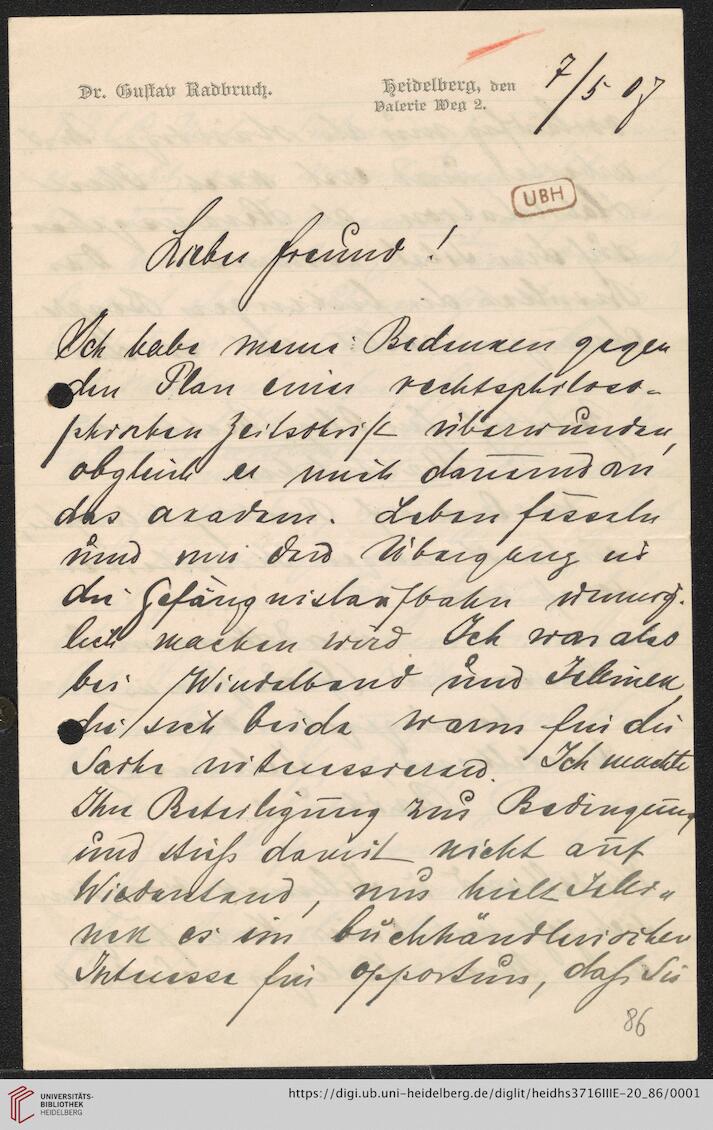 Dr. Gustav Radbruch.
Heidelberg, den 7/5 07
Valerie Weg 2.
UBH
Lieber Freund!
Ich habe meine Bedenken gegen
den Plan einer rechtsphiloso-
phischen Zeitschrift überwunden,
obgleich er mich dauernd an
das academ. Leben fesseln
und mir den Übergang in
die Gefängnislaufbahn unmög-
lich machen wird. Ich war also
bei Windelband und Jellinek,
die sich beide warm für die
Sache interessieren. Ich machte
Ihre Beteiligung zur Bedingung
und stieß damit nicht auf
Widerstand, nur hielt Jelli-
nek es im buchhändlerischen
Interesse für opportun, daß Sie
86
UNIVERSITÄTS-
BIBLIOTHEK
HEIDELBERG
https://digi.ub.uni-heidelberg.de/diglit/heidhs3716IIIE-20_86/0001